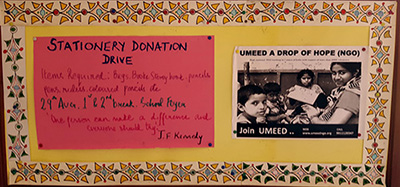 STATIONERY DONATION
DRIVE
Items Required: Bags, Books, Story book, pencils
pens coloured pencils etc
29th Aug, 1st & 2nd break. School Foyer
"One person can make a difference and
everyone should try"
J.F Kennedy
UMEED A DROP OF HOPE (NGO)
Join UMEED..